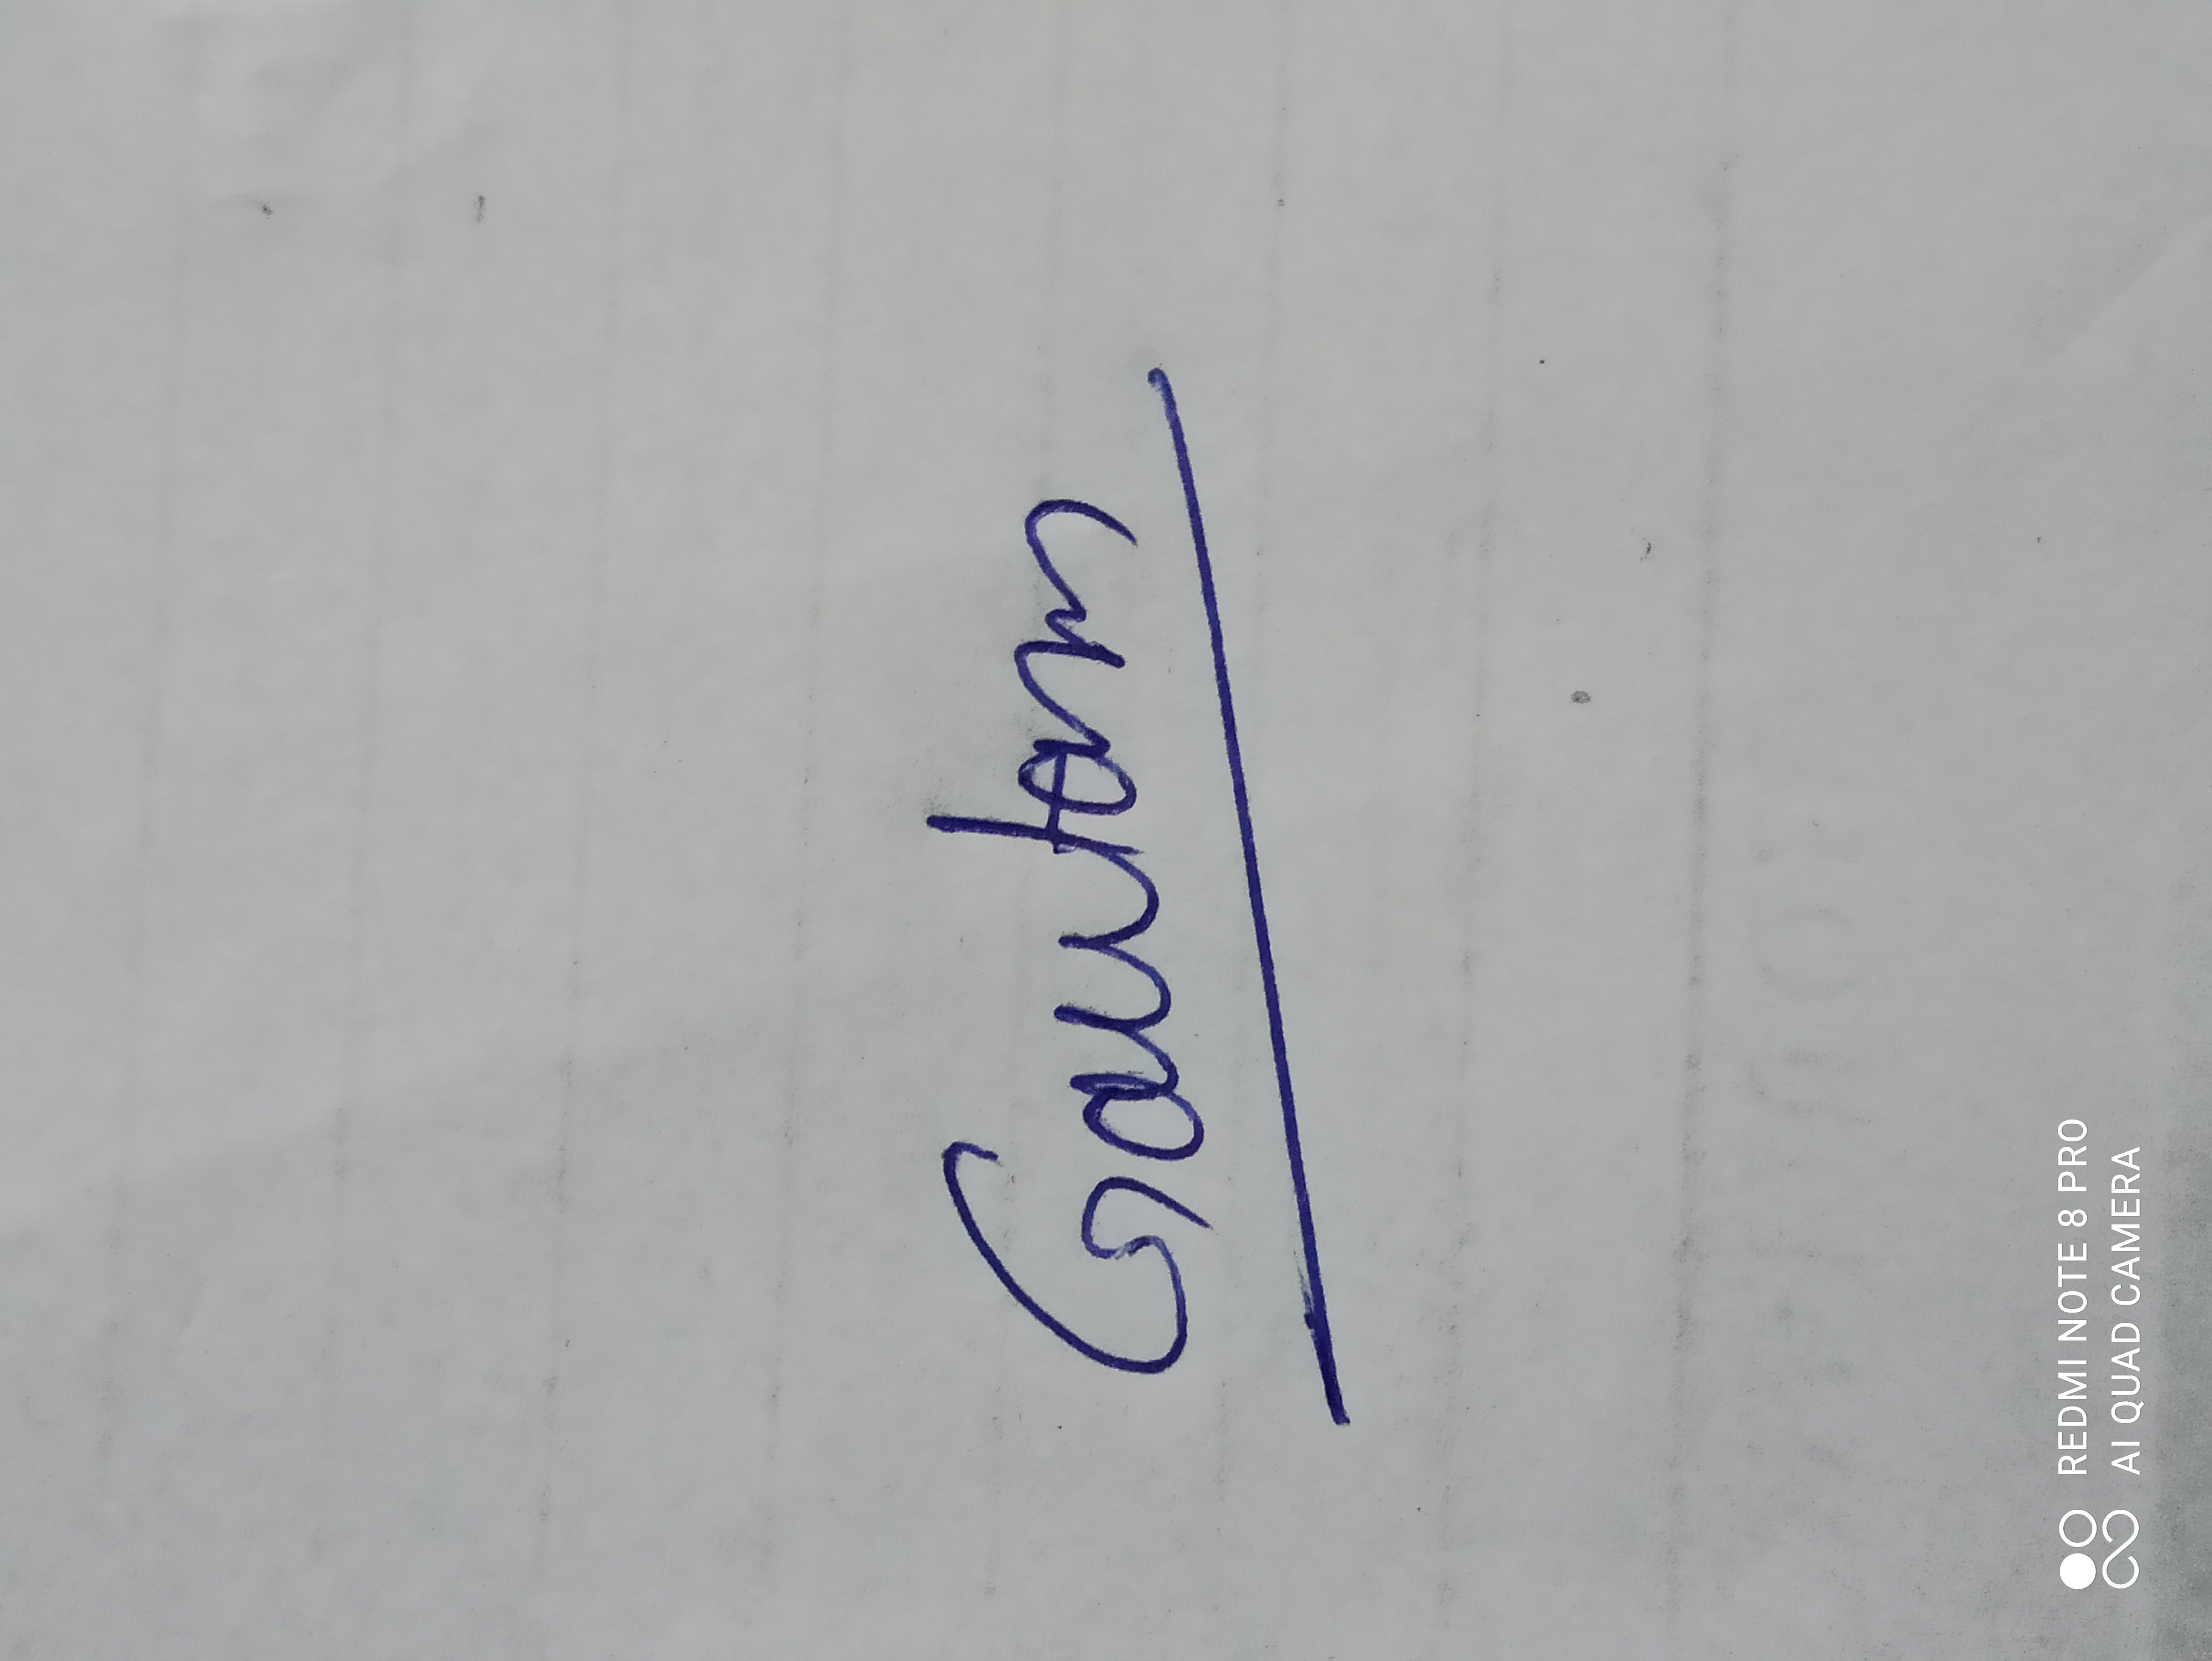 Gautam
REDMI NOTE 8 PRO
AI QUAD CAMERA